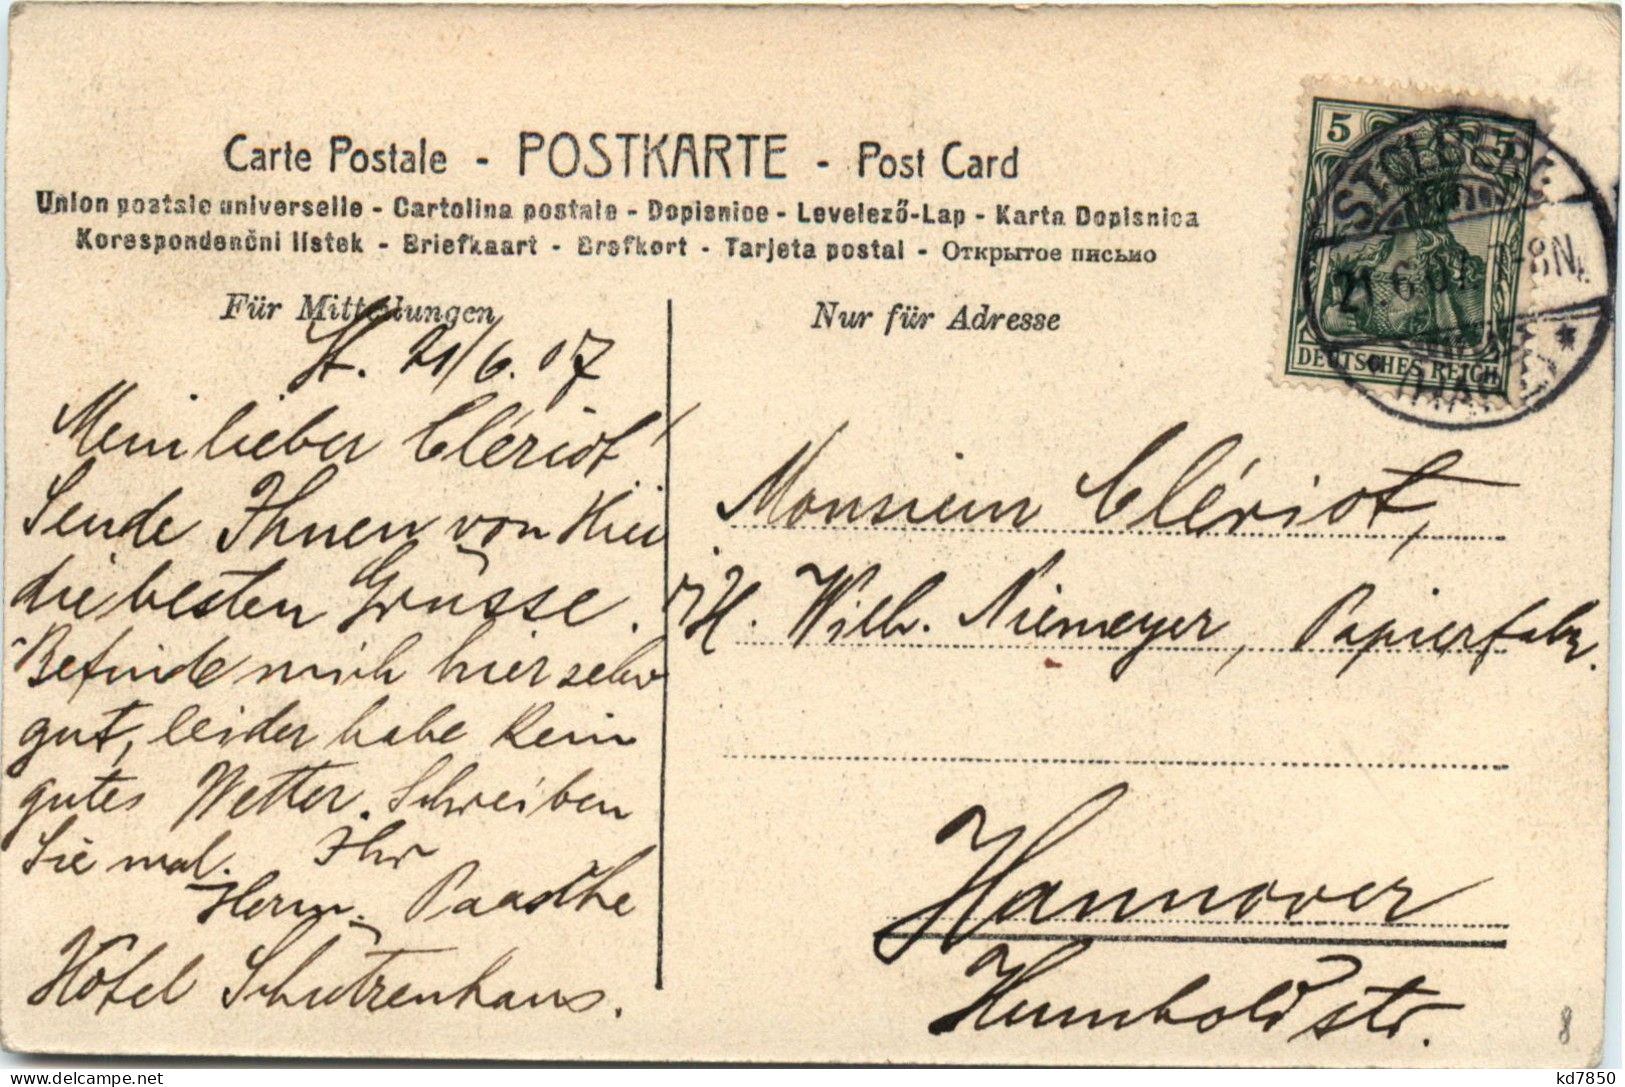 Carte Postale - POSTKARTE - Post Card
Union postale universelle - Cartolina postale - Dopisnice - Levelező-Lap - Karta Dopisnica
Korespondenční listek - Briefkaart - Brefkort - Tarjeta postal - Открытое письмо
Für Mitteilungen
St. 21/6. 07
Mein lieber Clériot!
Sende Ihnen von Hier
die besten Grüsse.
Befinde mich hier sehr
gut, leider habe kein
gutes Wetter. Schreiben
Sie mal. Ihr
Herm. Paasche
Hôtel Schützenhaus.
Nur für Adresse
Monsieur Clériot,
H. Wilh. Niemeyer, Papierfabr.
Hannover
Humboldstr.
5 5
DEUTSCHES REICH
21.6.07. 7-8N.
8
kd7850